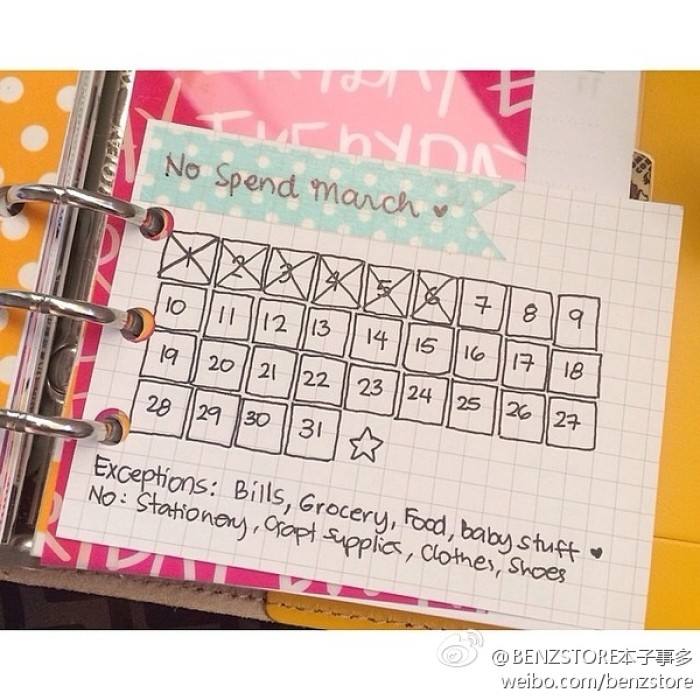 EVERYDAY
EVERYDAY
No Spend March ♥
1 2 3 4 5 6 7 8 9
10 11 12 13 14 15 16 17 18
19 20 21 22 23 24 25 26 27
28 29 30 31 ☆
Exceptions: Bills, Grocery, Food, baby stuff ♥
No: Stationery, Crapt supplies, Clothes, Shoes
@BENZSTORE本子事多
weibo.com/benzstore